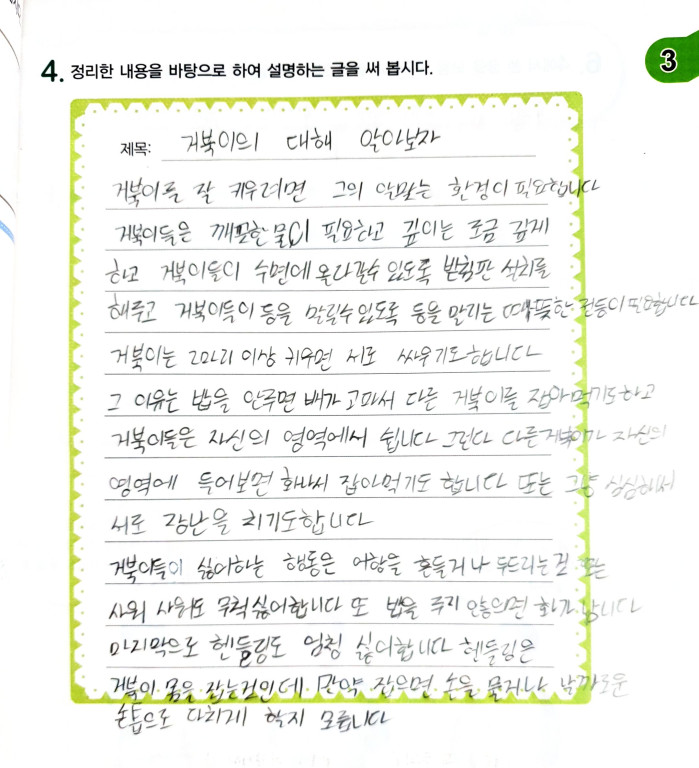 3
4. 정리한 내용을 바탕으로 하여 설명하는 글을 써 봅시다.
제목: 거북이의 대해 알아보자
거북이를 잘 키우려면 그의 알맞는 환경이 필요합니다
거북이들은 깨끗한 물이 필요하고 깊이는 조금 깊게
하고 거북이들이 수면에 올라갈수 있도록 받침판 설치를
해주고 거북이들이 등을 말릴수있도록 등을 말리는 따뜻한 전등이 필요합니다
거북이는 2마리 이상 키우면 서로 싸우기도합니다
그 이유는 밥을 안주면 배가 고파서 다른 거북이를 잡아먹기도하고
거북이들은 자신의 영역에서 쉽니다 그런다 다른거북이가 자신의
영역에 들어보면 화나서 잡아먹기도 합니다 또는 그냥 심심해서
서로 장난을 치기도합니다
거북이들이 싫어하는 행동은 어항을 흔들거나 두드리는것 또는
샤워 샤워도 무척싫어합니다 또 밥을 주지 안놓으면 화가 납니다
마지막으로 핸들링도 엄청 싫어합니다 헨들링은
거북이 몸을 잡는것인데 만약 잡으면 손을 물거나 날까로운
손톱으로 다치게 할지 모릅니다